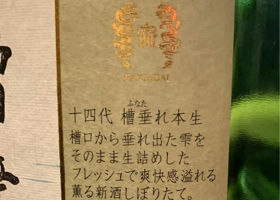 ふなた
十四代 槽垂れ本生
槽口から垂れ出た雫を
そのまま生詰めした
フレッシュで爽快感溢れる
薫る新酒しぼりたて。